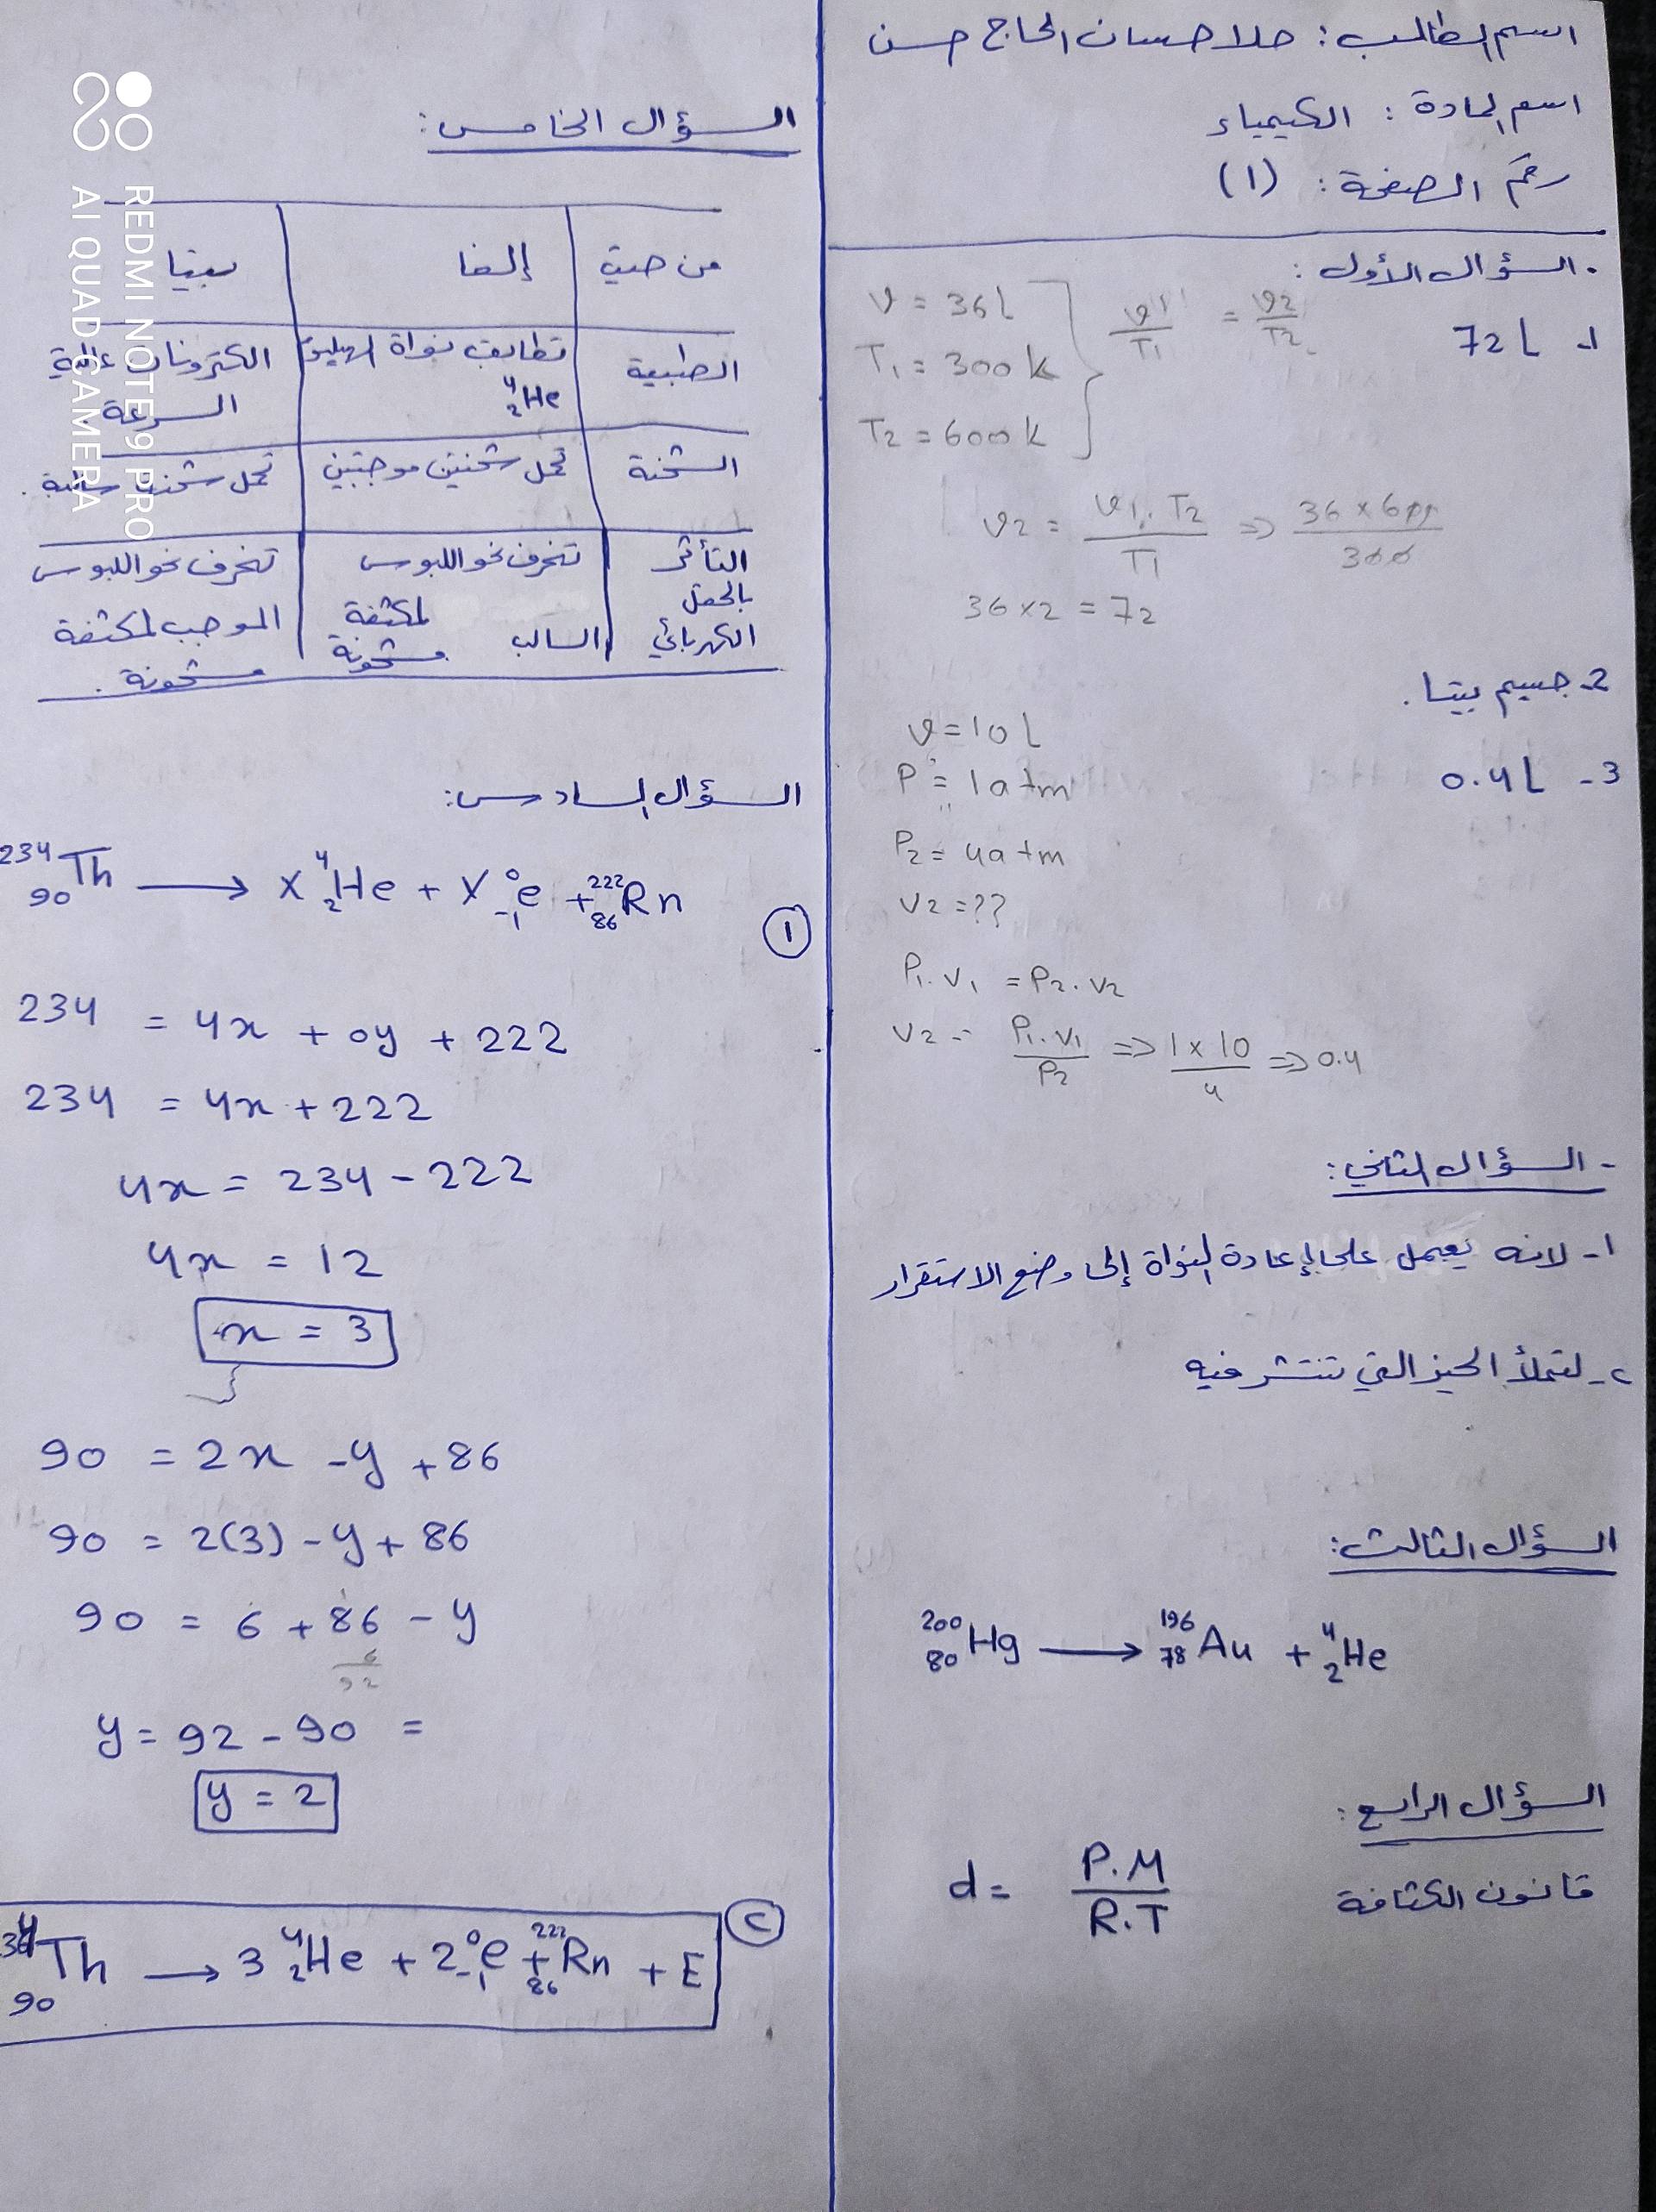 اسم الطالب: حلا حسان الحاج حسن
اسم المادة: الكيمياء
رقم الصفحة: (١)
- السؤال الأول:
1- 72 L
V = 36 L
T₁ = 300 K
T₂ = 600 K
V1/T1 = V2/T2
V2 = V1. T2/T1 => 36 × 600/300
36 × 2 = 72
2- جسيم بيتا.
3- 0.4 L
V = 10 L
P = 1 atm
P₂ = 4 atm
V2 = ??
P₁. V₁ = P2. V2
V2 = P₁. V₁/P2 => 1 × 10/4 => 0.4
- السؤال الثاني:
١- لانه يعمل على إعادة النواة إلى وضع الاستقرار
٢- لتملأ الحيز التي تنتشر فيه
السؤال الثالث:
²⁰⁰₈₀Hg → ¹⁹⁶₇₈Au + ⁴₂He
السؤال الرابع:
قانون الكثافة d = P.M/R.T
السؤال الخامس:
من حيث إلفا بيتا
الطبيعة تطابق نواة الهيليوم ⁴₂He الكترونات عالية السرعة.
الشحنة تحمل شحنتين موجبتين تحمل شحنة سالبة.
التأثر بالحقل الكهربائي تنحرف نحو اللبوس السالب لمكثفة مشحونة تنحرف نحو اللبوس الموجب لمكثفة مشحونة.
السؤال السادس:
①
²³⁴₉₀Th → X ⁴₂He + Y ⁰₋₁e + ²²²₈₆Rn
234 = 4x + 0y + 222
234 = 4x + 222
4x = 234 - 222
4x = 12
x = 3
90 = 2x - y + 86
90 = 2(3) - y + 86
90 = 6 + 86 - y
6
92
y = 92 - 90 =
y = 2
②
²³⁴₉₀Th → 3 ⁴₂He + 2 ⁰₋₁e + ²²²₈₆Rn + E
REDMI NOTE 9 PRO
AI QUAD CAMERA